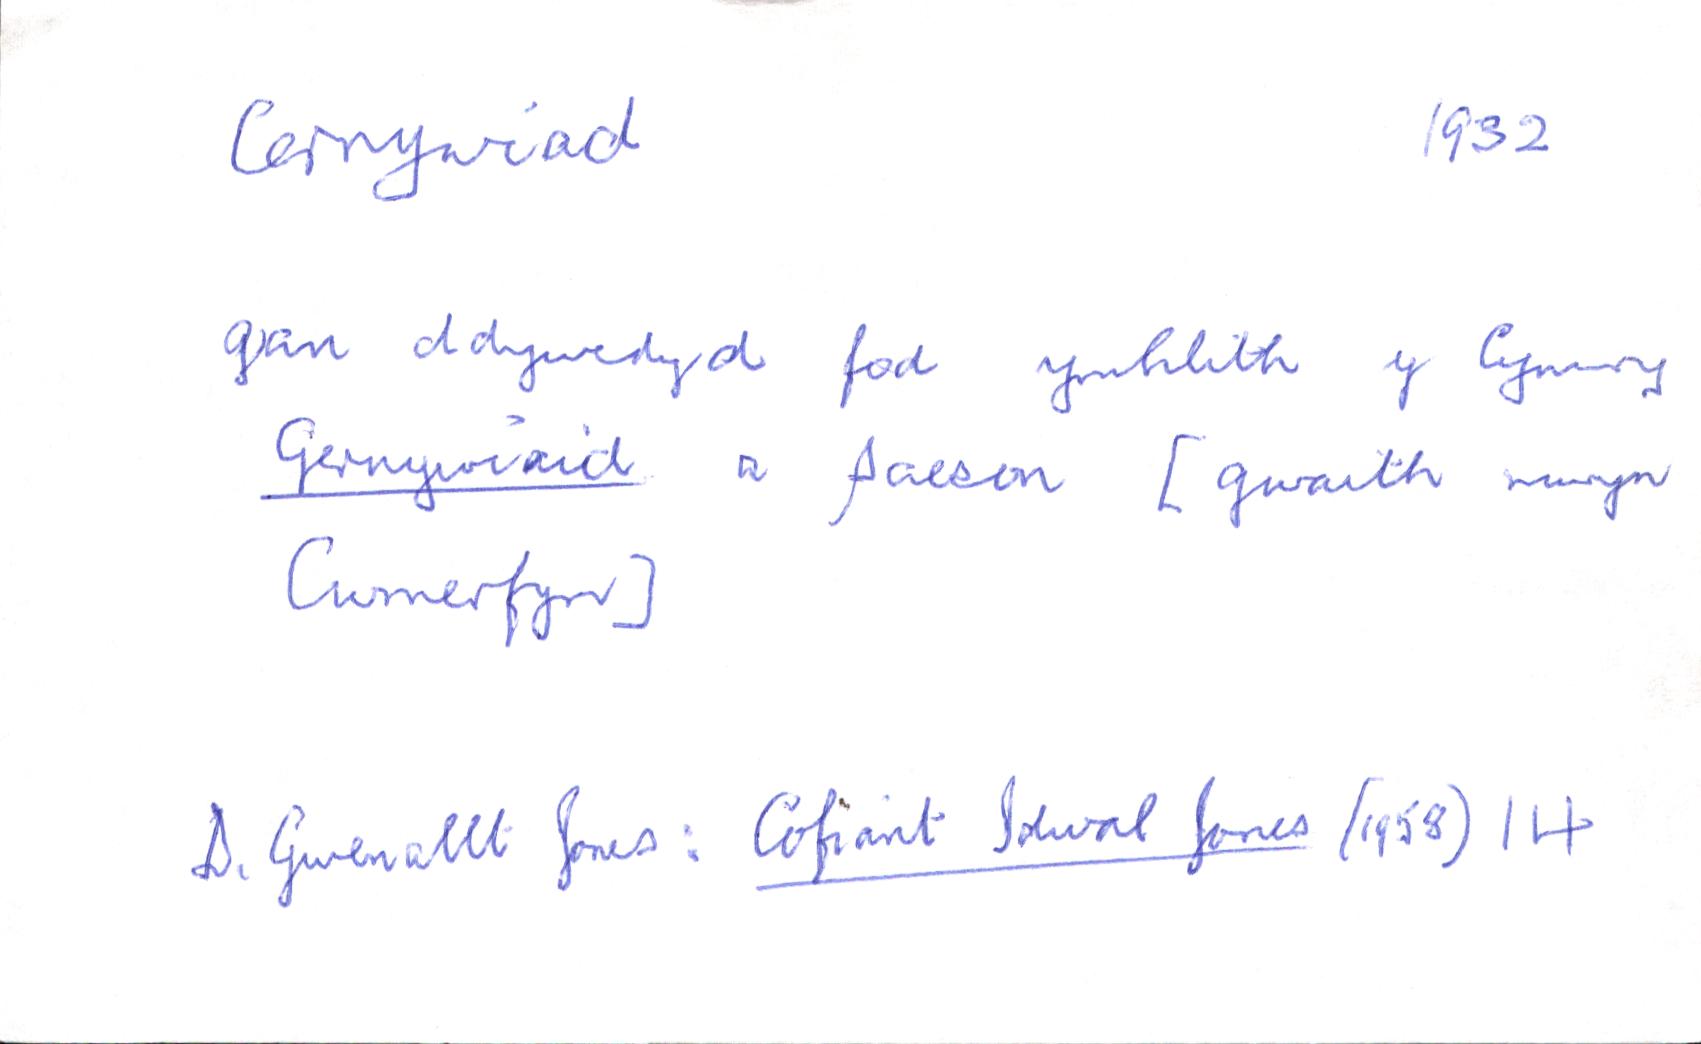 Cernywiad 1932
gan ddywedyd fod ymhlith y Cymry
Gernywiaid a Saeson [gwaith mwyn
Cwmerfyn]
D. Gwenallt Jones: Cofiant Idwal Jones (1958) 14